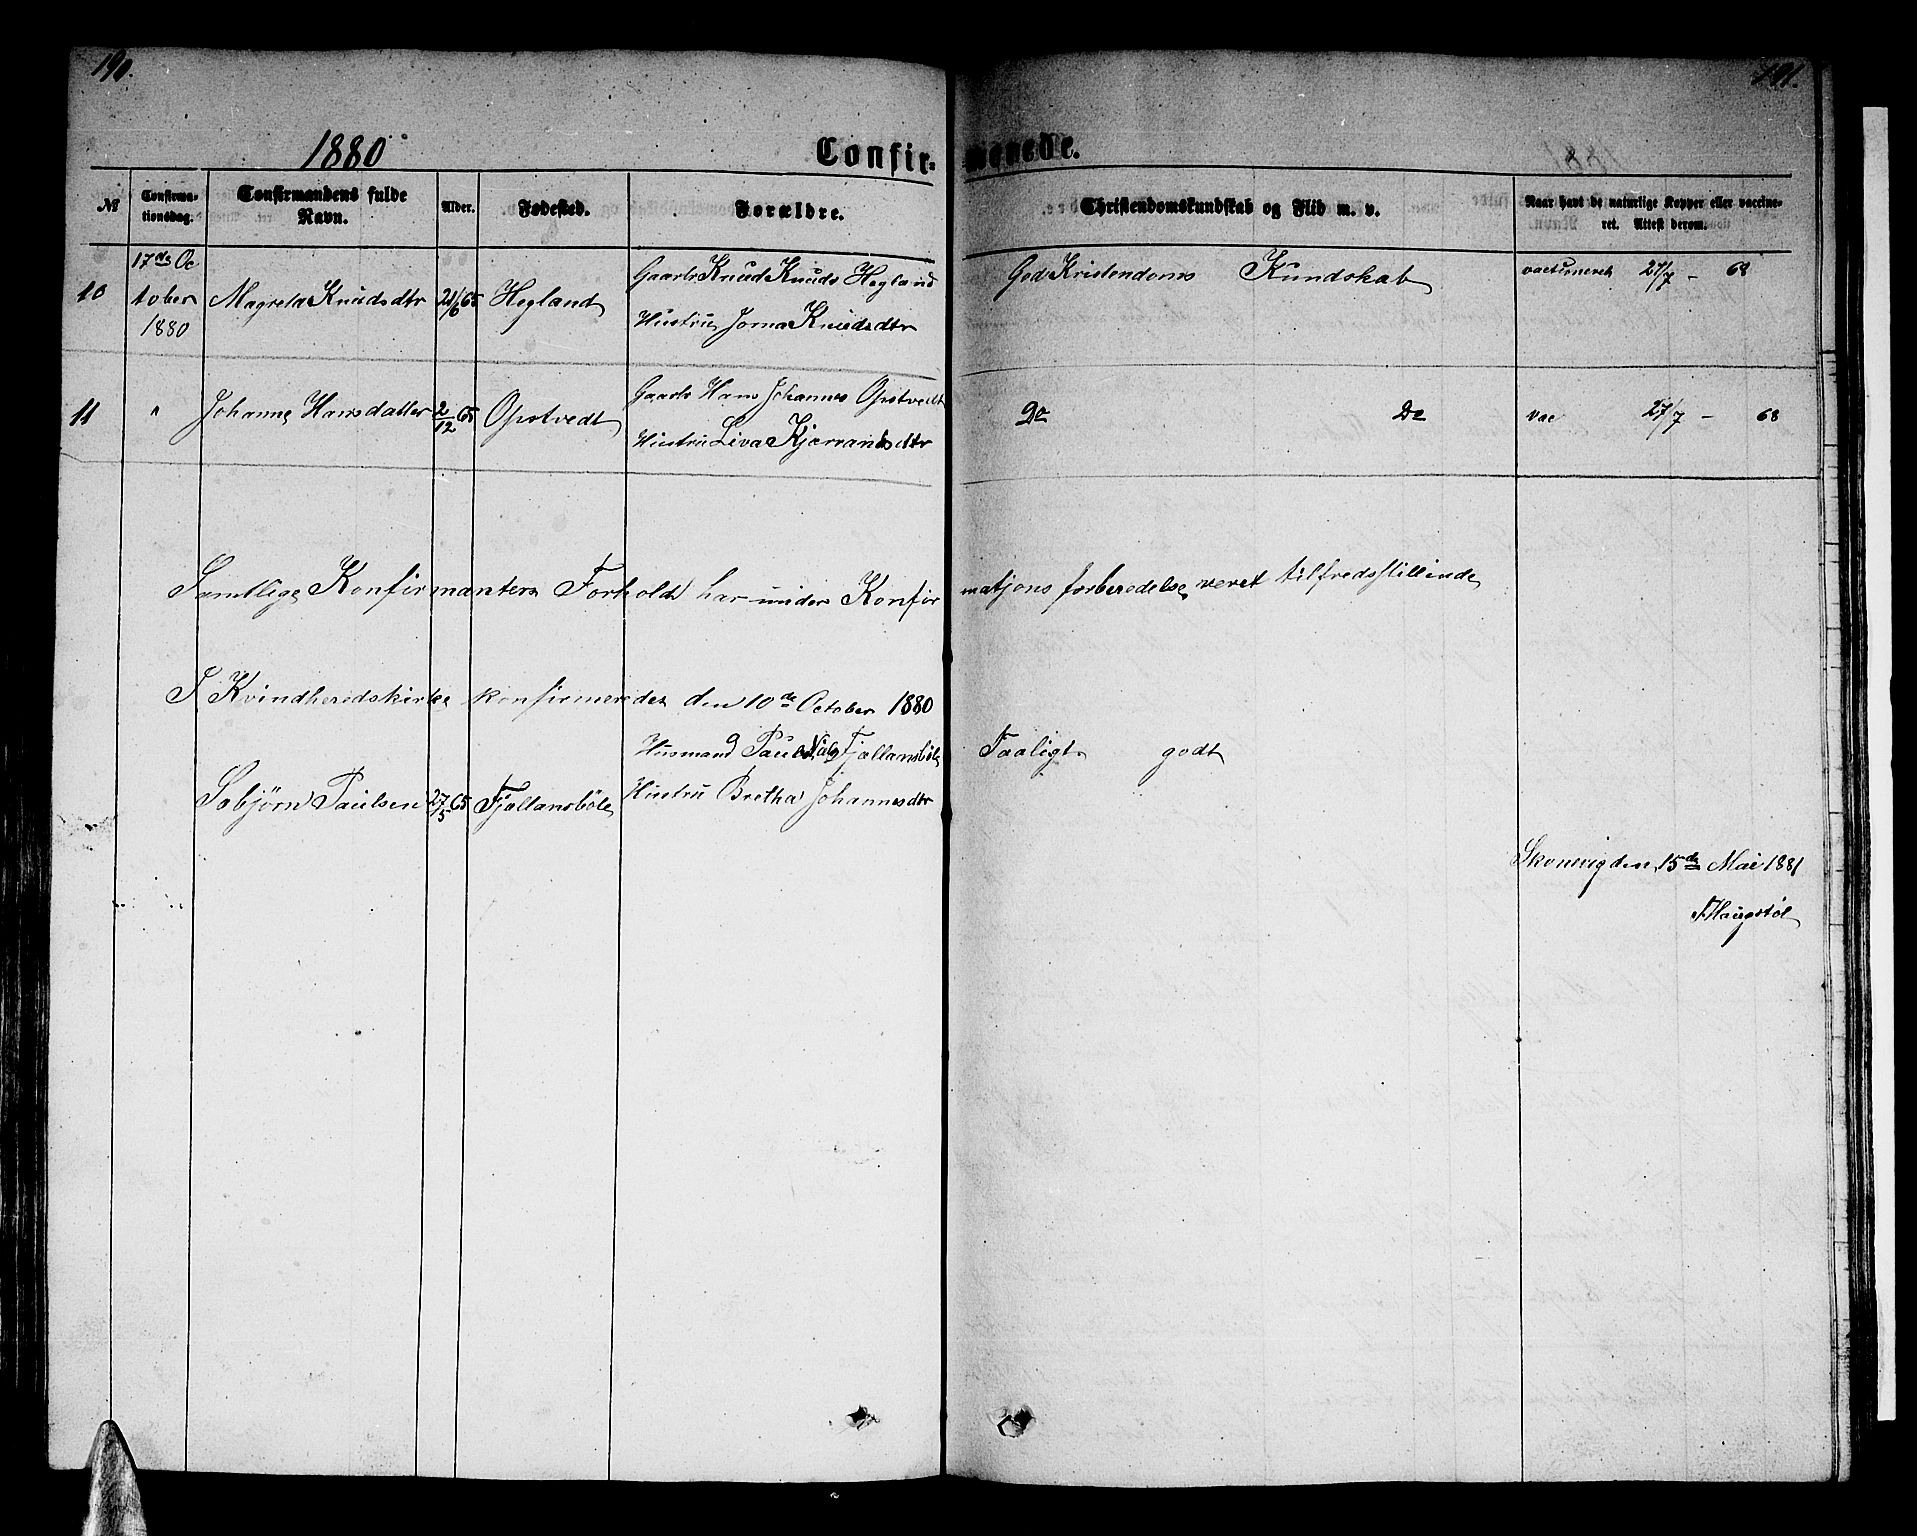 190.
191.
1880
Confir-
manede.
№
Confirma-
tionsdag.
Confirmandens fulde
Navn.
Alder.
Fødested.
Forældre.
Christendomskundskab og Flid m. v.
Naar havt de naturlige Kopper eller vaccine-
ret. Attest derom.
10
17de Oc
tober
1880
Magreta Knudsdtr
21/6 65
Hegland
Gaarbr Knud Knuds Hegland
Hustru Jorna Knudsdtr
God Kristendoms Kundskab
vactioneret 27/7 - 68
11
"
Johanne Hansdatter
2/12 65
Opstvedt
Gaarb Hans Johannes Opstvedt
Hustru Liva Kjerrandsdtr
Do Do
vac 27/7 - 68
Samtlige Konfirmanters Forhold har under Konfir
matjons forberedelse veret tilfredsstillende
I Kvindheredskirke konfirmeredes den 10de October 1880
Sebjørn Paulsen
27/5 65
Fjellansbøle
Husmand Paul Fjellansbøle
Hustru Bretha Johannesdtr
Taaligt godt
Skonevig den 15de Mai 1881
Haugstøl